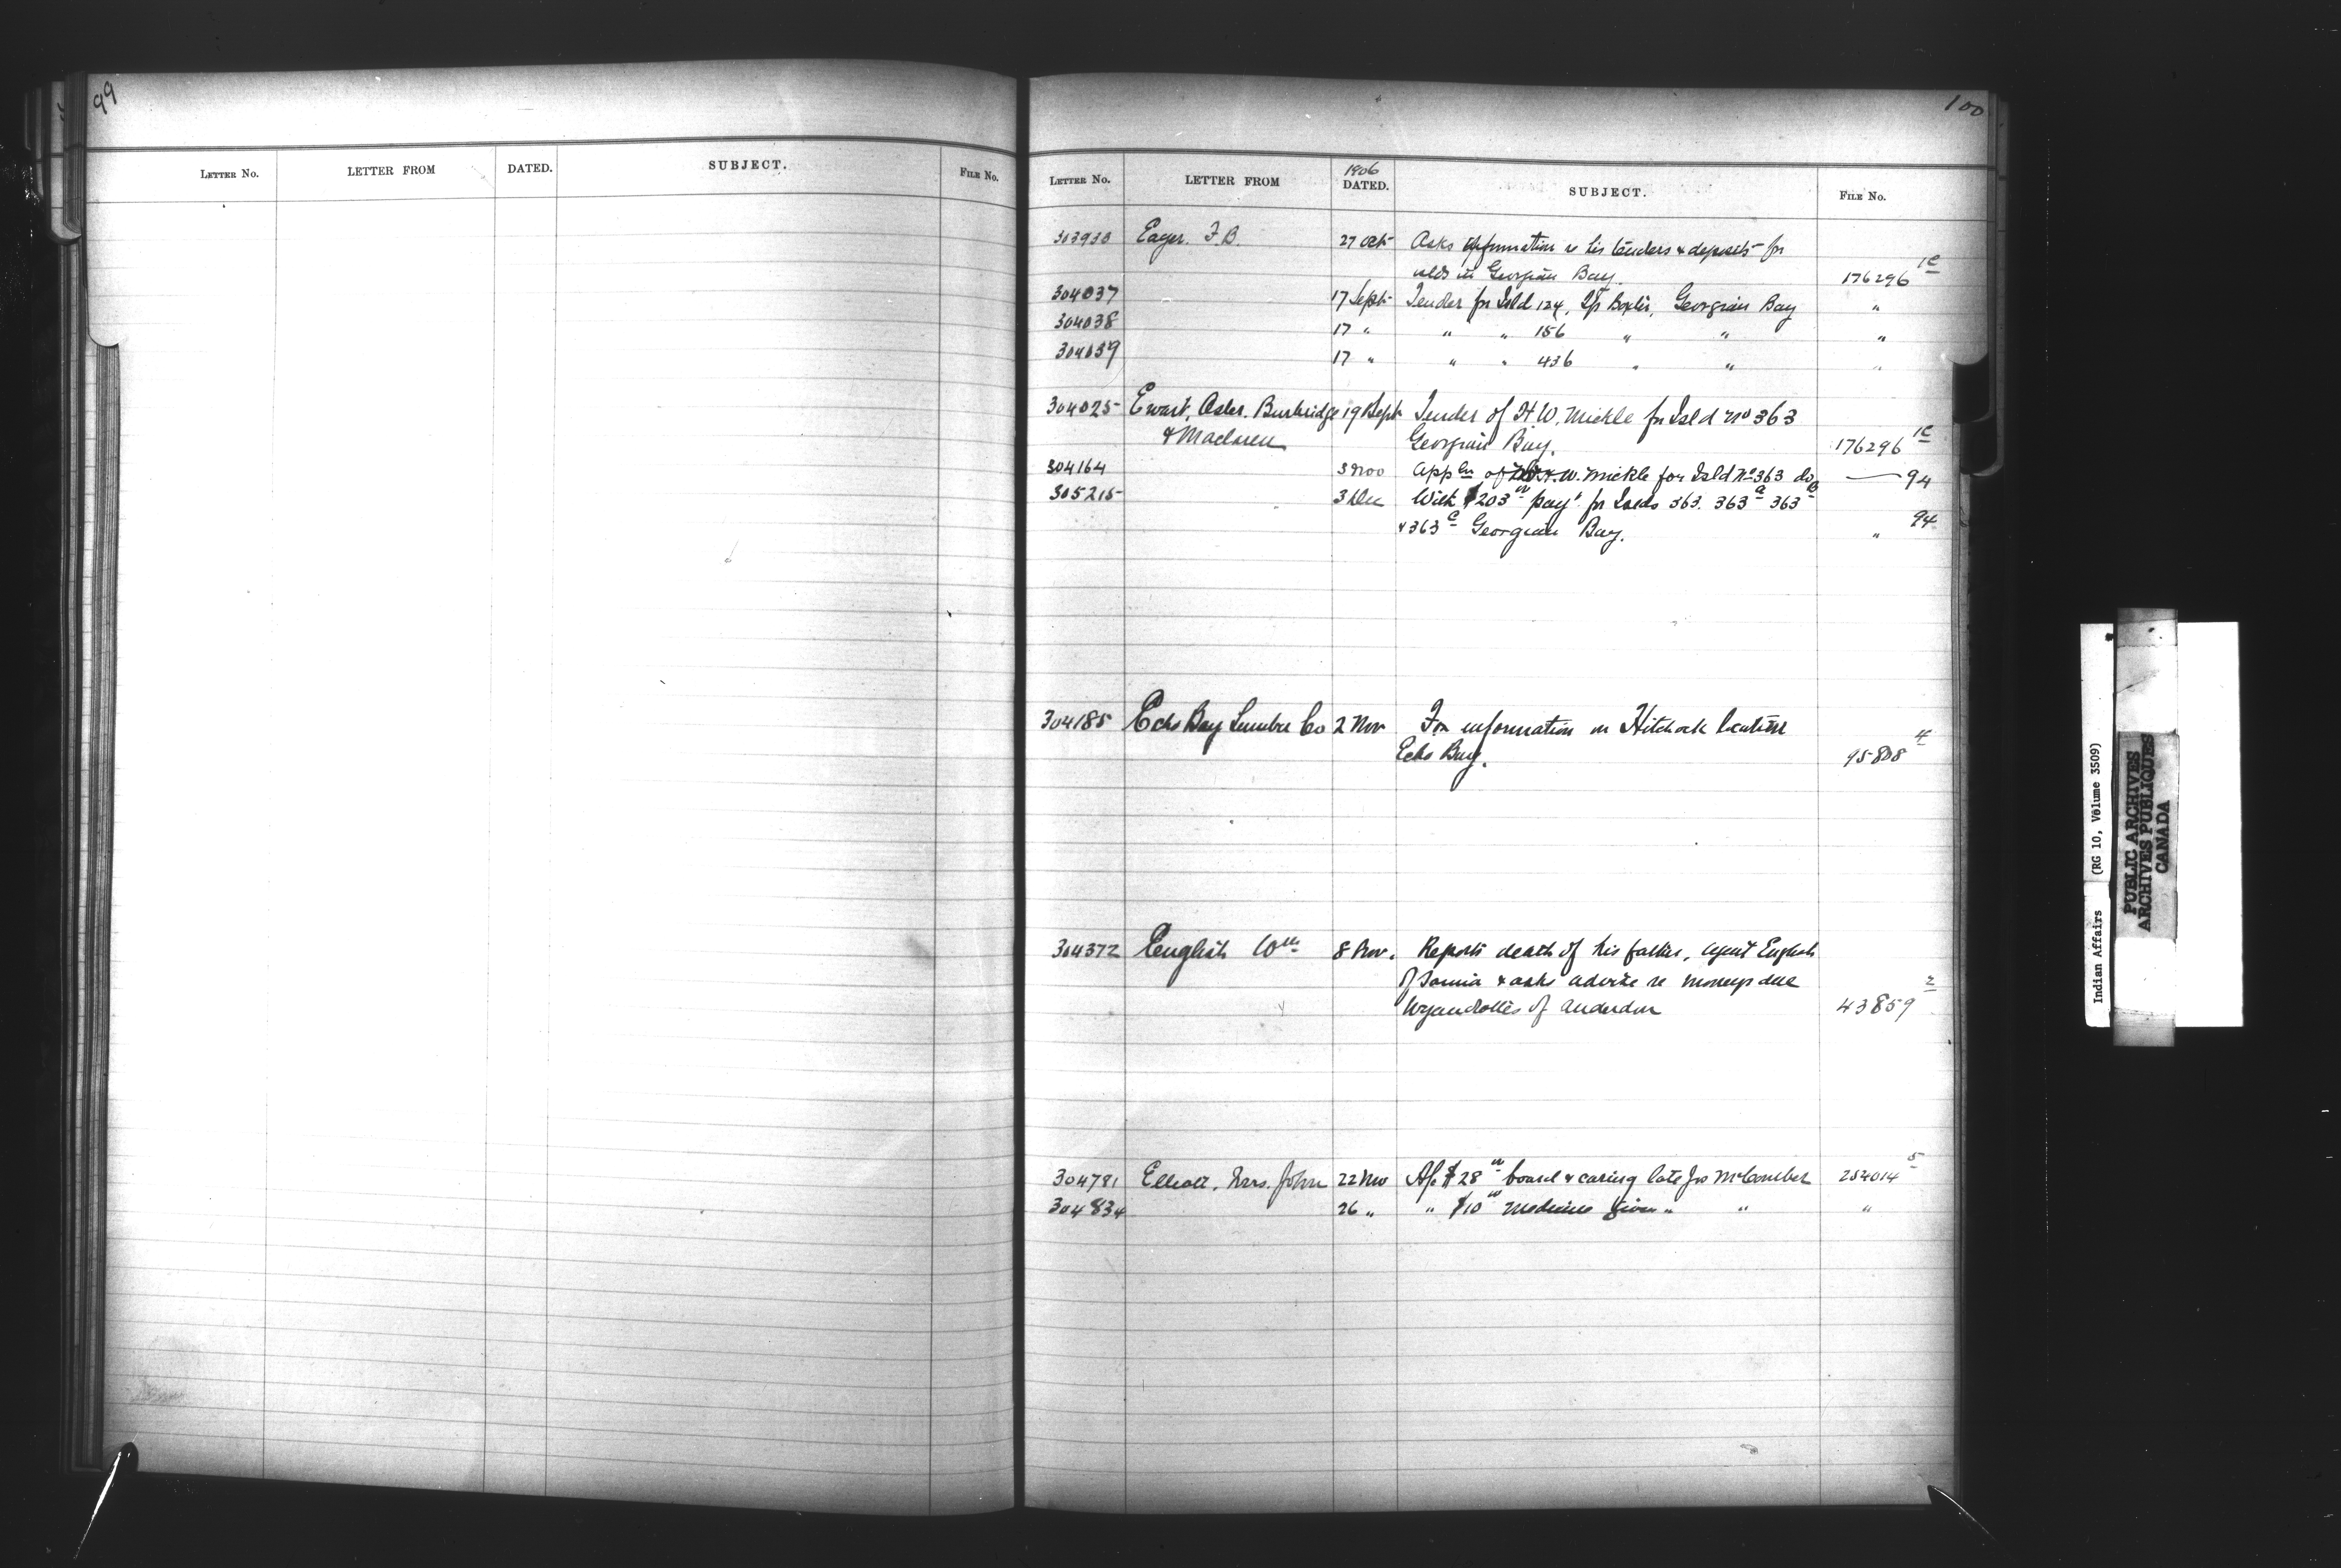 99
LETTER NO. LETTER FROM DATED. SUBJECT. FILE NO.
100
1906
LETTER NO. LETTER FROM DATED. SUBJECT. FILE NO.
303930 Eager. F. B. 27 Oct Asks information re his tenders & deposits for
islds in Georgian Bay. 176296 1C
304037 17 Sept Tender for Isld 124, Georgian Bay "
304038 17 " " " 186 " " "
304039 17 " " " 436 " " "
304025 Ewart, Osler, Burbridge 19 Sept Tender of H. W. Mickle for Isld No 363
& Maclaren Georgian Bay. 176296 1C
304164 3 Nov Appln of H. W. Mickle for Isld No 363 do — 94
305215 3 Dec With $203 payt for Islds 363. 363A 363B
& 363C Georgian Bay. " 94
304185 Echo Bay Lumber Co 2 Nov For information re Hitchock location
Echo Bay. 95808 4
304372 English Wm 8 Nov. Reports death of his father, Agent English
of Sarnia & asks advice re moneys due
Wyandottes of Anderdon 43859 2
304791 Elliott, Mrs. John 22 Nov A/c $28 board & caring late Jno McComber 254014 5
304834 26 " " $10 medicine given " " "
Indian Affairs (RG 10, Volume 3509)
PUBLIC ARCHIVES
ARCHIVES PUBLIQUES
CANADA